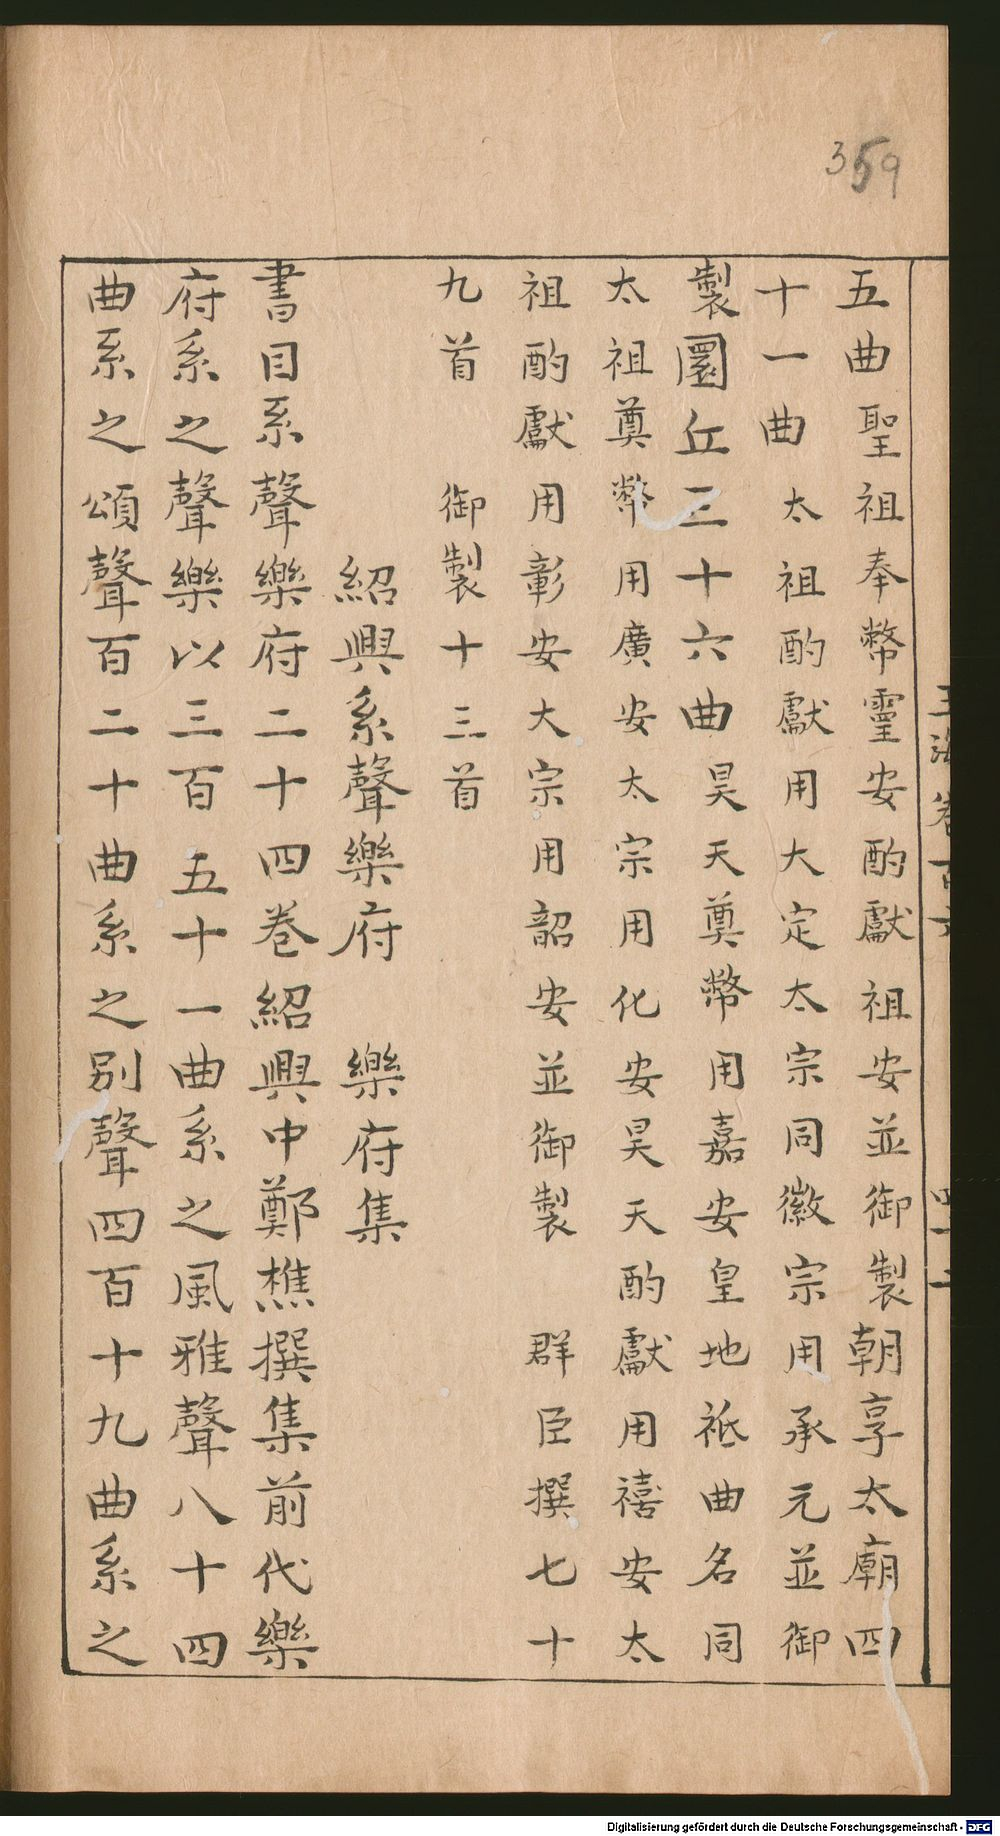 359
五曲聖祖奉幣靈安酌獻祖安並御製朝享太廟四
十一曲太祖酌獻用大定太宗同徽宗用承元並御
製圜丘三十六曲昊天奠幣用嘉安皇地祗曲名同
太祖奠幣用廣安太宗用化安昊天酌獻用禧安太
祖酌獻用彰安大宗用韶安並御製 群臣撰七十
九首 御製十三首
紹興系聲樂府 樂府集
書目系聲樂府二十四卷紹興中鄭樵撰集前代樂
府系之聲樂以三百五十一曲系之風雅聲八十四
曲系之頌聲百二十曲系之別聲四百十九曲系之
Digitalisierung gefördert durch die Deutsche Forschungsgemeinschaft - DFG